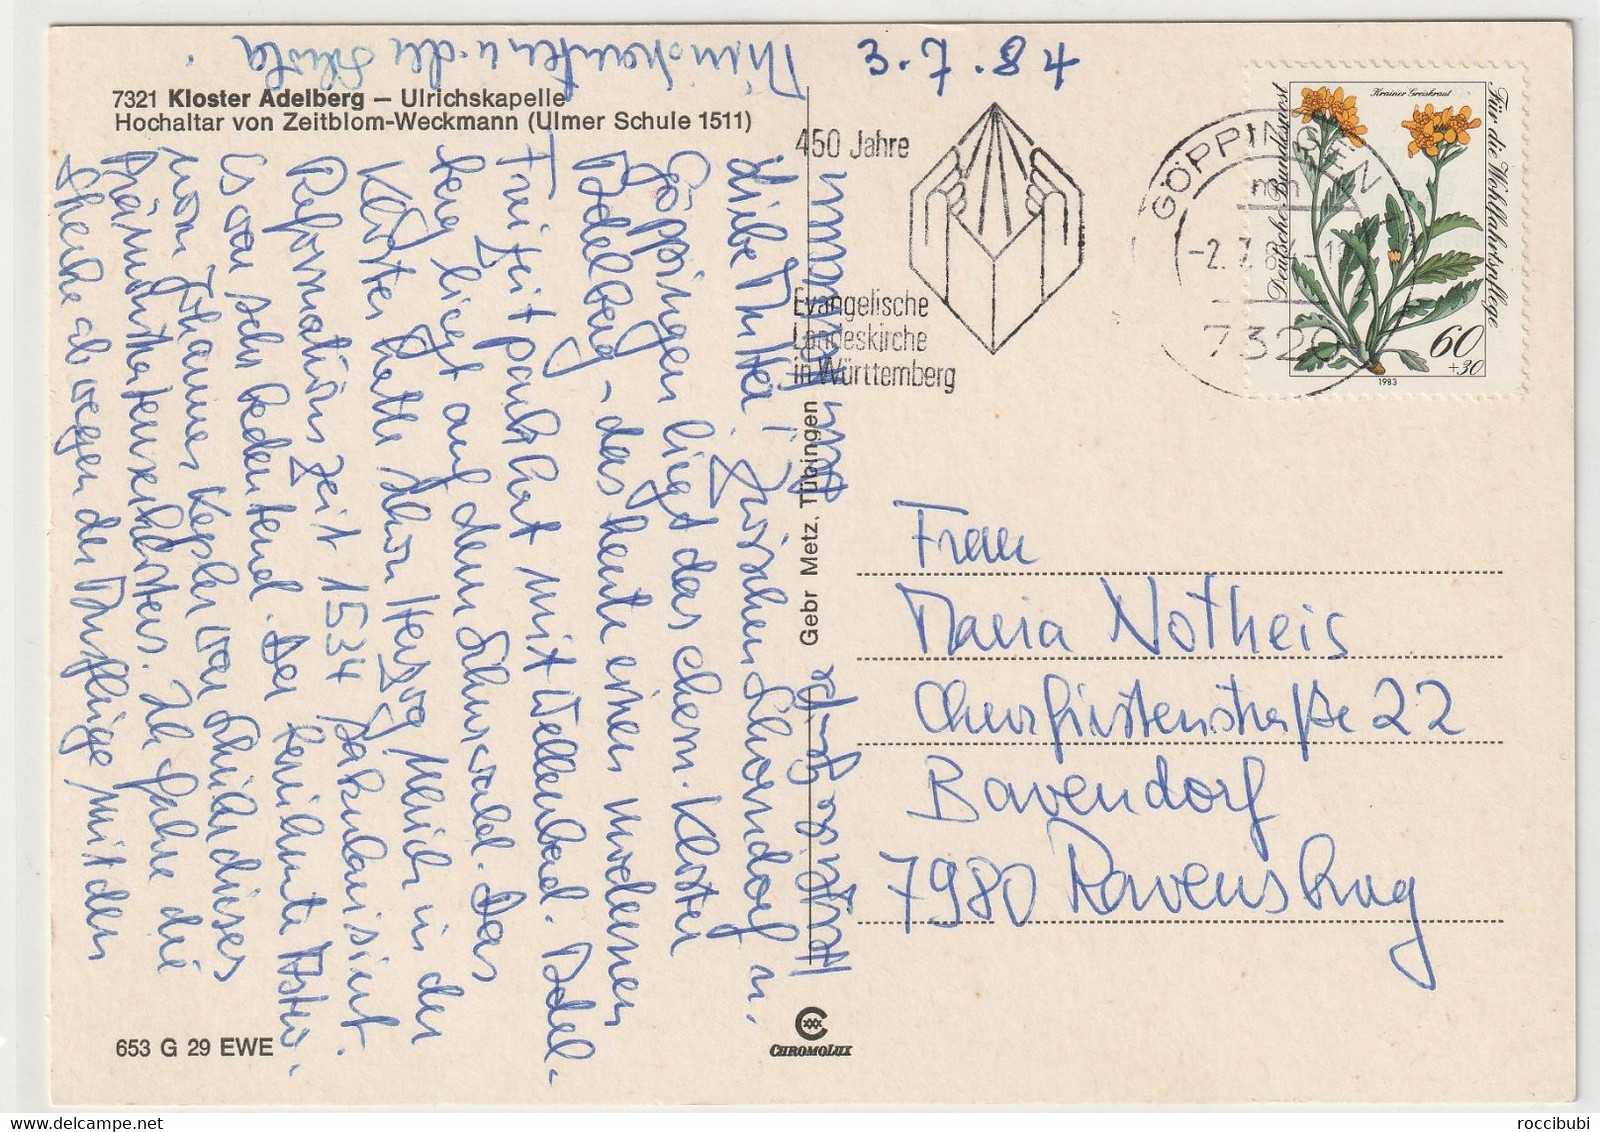 4 8. 7. 3
7321 Kloster Adelberg – Ulrichskapelle
Hochaltar von Zeitblom-Weckmann (Ulmer Schule 1511)
Liebe Zwischen Schorndorf u.
Göppingen liegt das ehem. Kloster
Adelberg – das heute einen modernen
Freizeitpark hat mit Wellenbad. Adel-
berg liegt auf dem Schurwald. Das
Kloster hatte schon Herzog Ulrich in der
Reformationszeit 1534 säkularisiert.
Es war sehr bedeutend. Der berühmte Astro-
nom Johannes Kepler war Schüler dieses
Prämonstratenserklosters. Ich fahre die
Strecke ab wegen der Ausflüge mit den
u. der Schola.
Herzliche Grüße
450 Jahre
Evangelische
Landeskirche
in Württemberg
GÖPPINGEN
-2.7.84-
7320
Krainer Greiskraut
Deutsche Bundespost
Für die Wohlfahrtspflege
60
+30
1983
Gebr Metz, Tübingen
Frau
Maria Notheis
Churfürstenstraße 22
Bavendorf
7980 Ravensburg
653 G 29 EWE
CHROMOLUX
roccibubi